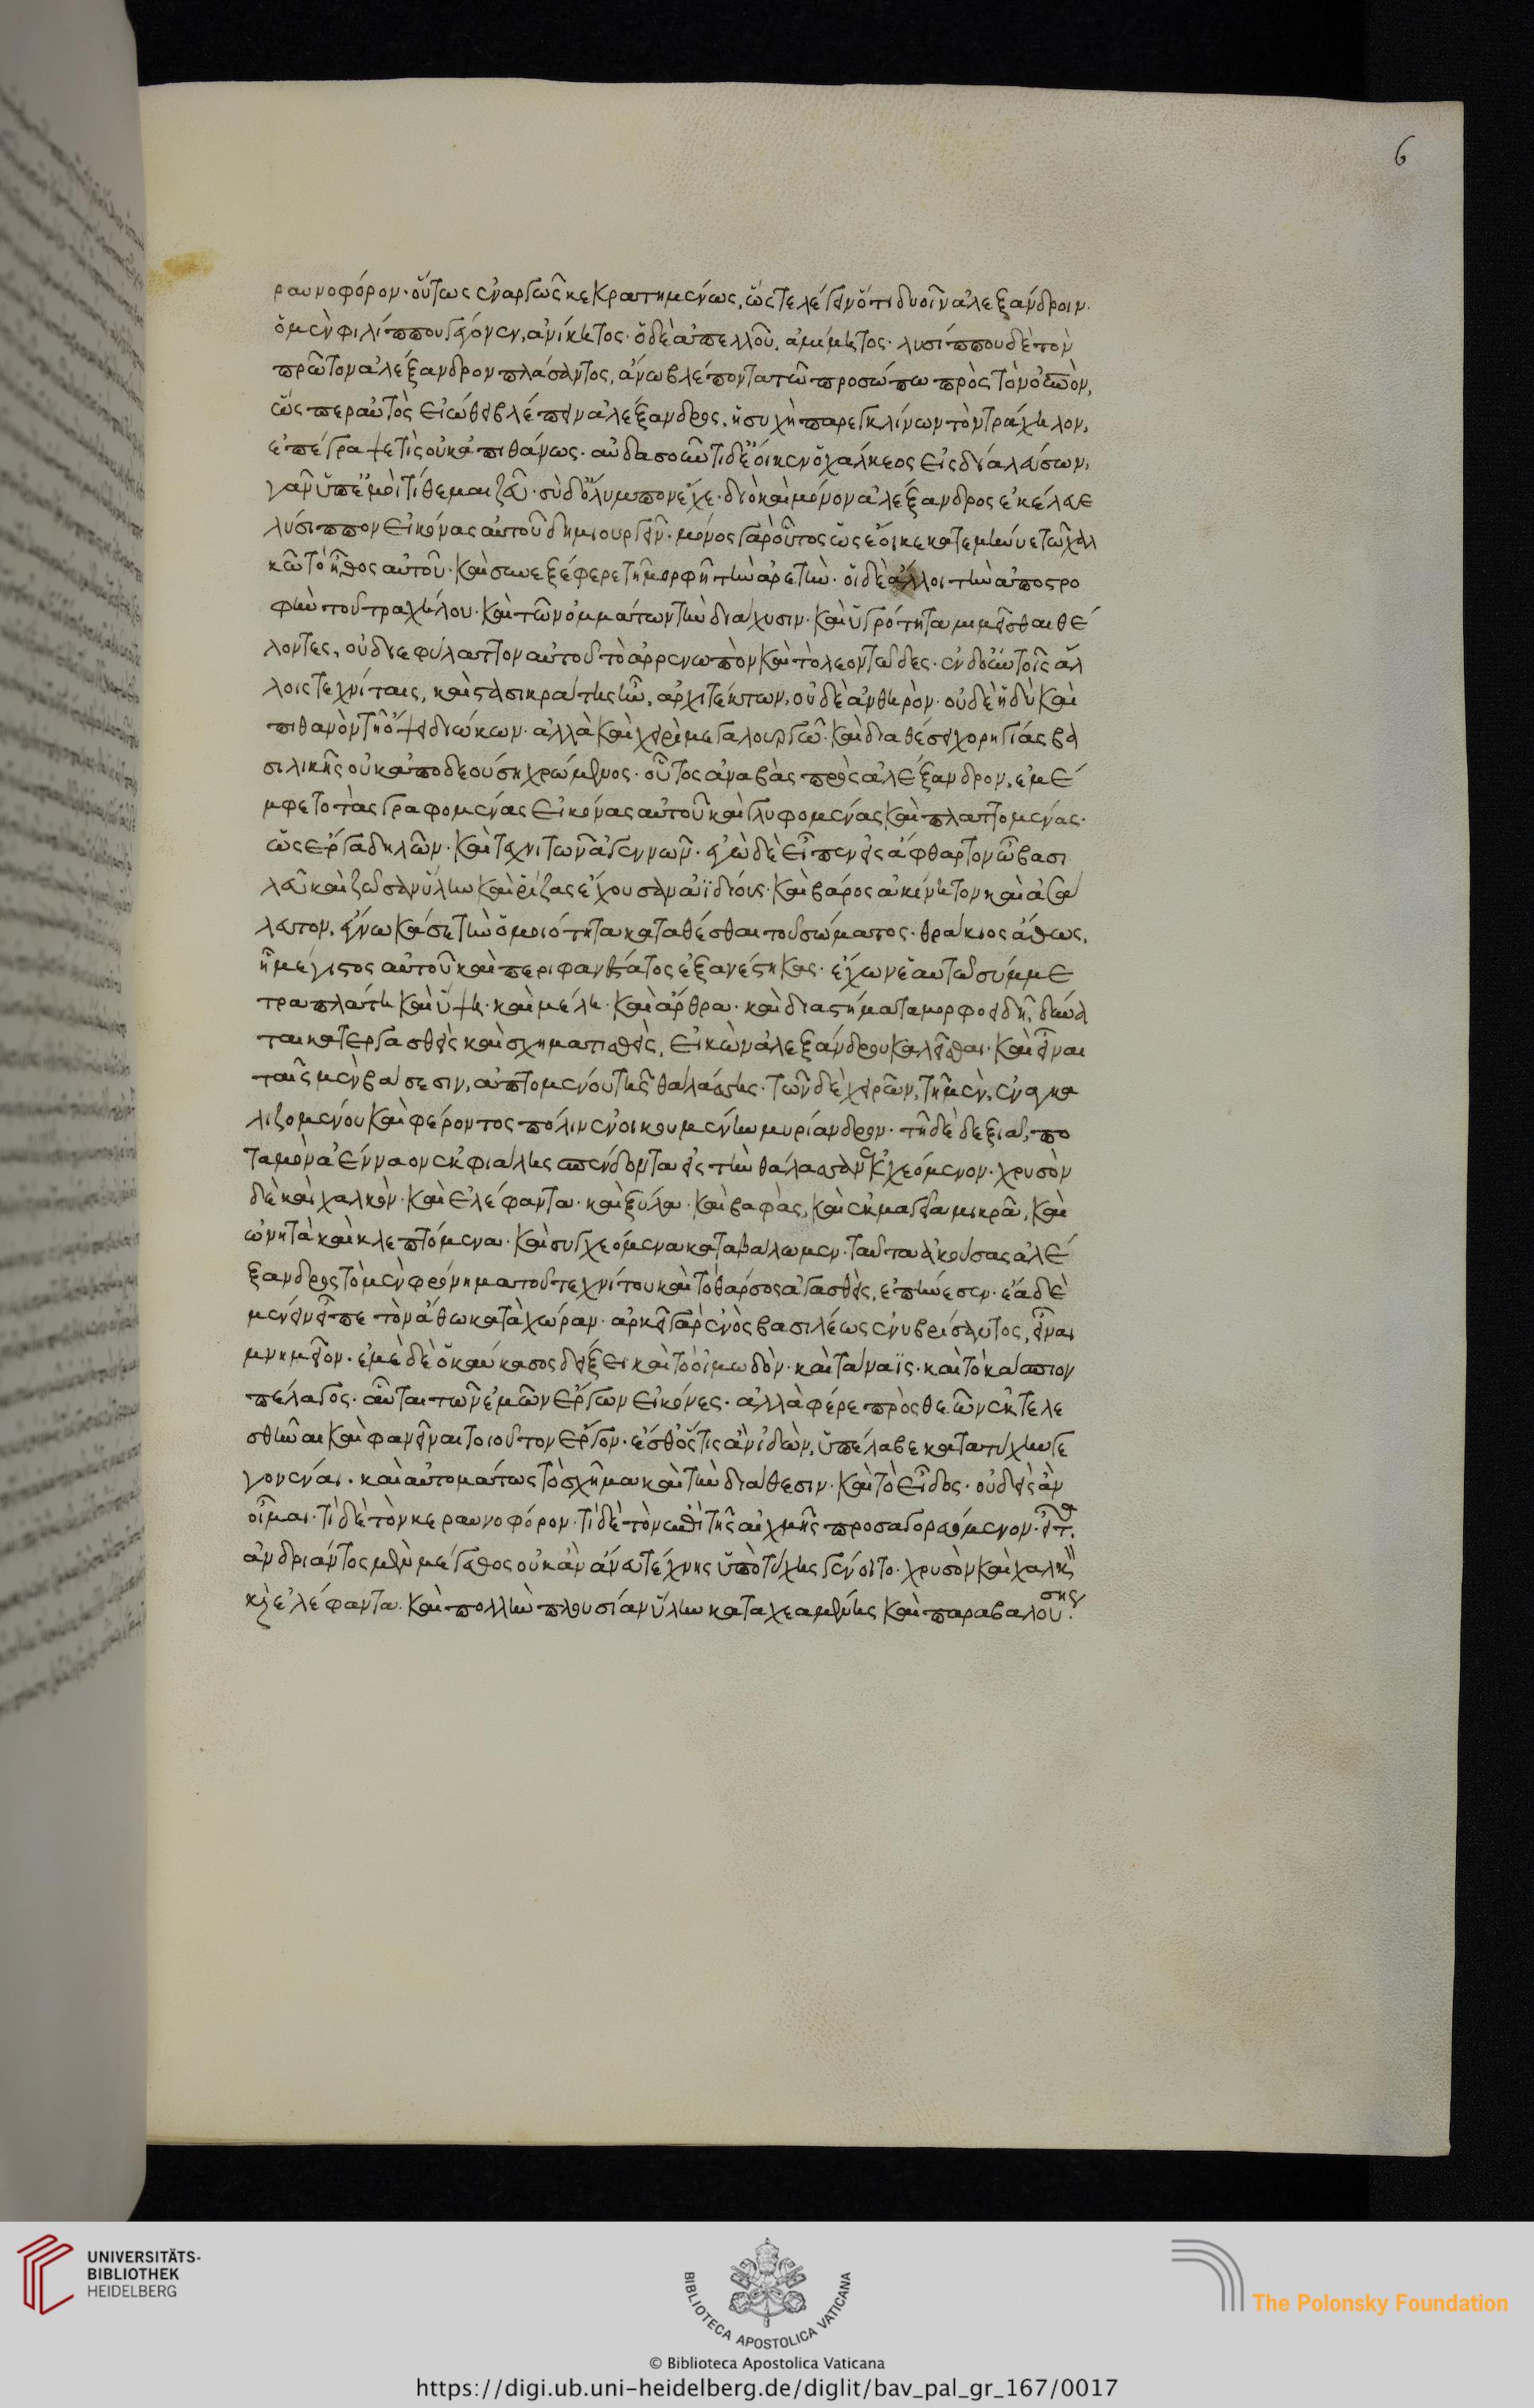 6
ραυνοφόρον· οὕτως ἐναργῶς κεκρατημένως, ὥστε λέγειν ὅτι δυοῖν ἀλεξάνδροιν·
ὁ μὲν φιλίππου γέγονεν, ἀνίκητος· ὁ δὲ ἀπελλοῦ, ἀμίμητος· λυσίππου δὲ τὸν
πρῶτον ἀλέξανδρον πλάσαντος, ἄνω βλέποντα τῶ προσώπω πρὸς τὸν οὐνὸν,
ὥσπερ αὐτὸς εἰώθει βλέπειν ἀλέξανδρος, ἡσυχῆ παρεγκλίνων τὸν τράχηλον,
ἐπέγραψε τὶς οὐκ ἀπιθάνως· αὐδασοῦντι δ' ἔοικεν ὁ χάλκεος εἰς δία λεύσων,
γᾶν ὑπ' ἐμοὶ τίθεμαι ζεῦ· σὺ δ' ὄλυμπον ἔχε· διὸ καὶ μόνον ἀλέξανδρος ἐκέλευε
λύσιππον εἰκόνας αὐτοῦ δημιουργεῖν· μόνος γὰρ οὗτος ὡς ἔοικε κατεμήνυε τῶ χαλ
κῶ τὸ ἦθος αὐτοῦ· καὶ συνεξέφερε τῆ μορφῆ τὴν ἀρετὴν· οἱ δὲ ἄλλοι τὴν ἀποστρο
φὴν τοῦ τραχήλου· καὶ τῶν ὀμμάτων τὴν διάχυσιν· καὶ ὑγρότητα μιμεῖσθαι θέ
λοντες, οὐ διεφύλαττον αὐτοῦ τὸ ἀρρενωπὸν καὶ τὸ λεοντῶδες· ἐν δ' οὖν τοῖς ἄλ
λοις τεχνίταις, καὶ στασικράτης ἦν, ἀρχιτέκτων, οὐδὲ ἀνθηρὸν· οὐδὲ ἡδὺ καὶ
πιθανὸν τῆ ὄψει διώκων· ἀλλὰ καὶ χειρὶ μεγαλουργῶ· καὶ διαθέσει χορηγίας βα
σιλικῆς οὐκ ἀποδεούση χρώμενος· οὗτος ἀναβὰς πρὸς ἀλέξανδρον, ἐμέ
μφετο τὰς γραφομένας εἰκόνας αὐτοῦ καὶ γλυφομένας καὶ πλαττομένας·
ὡς ἔργα δηλῶν· καὶ τεχνιτῶν ἀγεννῶν· ἐγὼ δὲ εἶπεν εἰς ἄφθαρτον ὦ βασι
λεῦ καὶ ζῶσαν ὕλην καὶ ῥίζας ἔχουσαν ἀϊδίους· καὶ βάρος ἀκίνητον καὶ ἀσά
λευτον, ἔγνωκά σε τὴν ὁμοιότητα καταθέσθαι τοῦ σώματος· θράκιος ἄθως,
ἧ μέγιστος αὐτοῦ καὶ περιφανέστατος ἐξανέστηκας· ἔχων ἑαυτῶ σύμμε
τρα πλάτη καὶ ὕψη· καὶ μέλη· καὶ ἄρθρα· καὶ διαστήματα μορφοειδῆ, δύνα
ται κατεργασθεὶς καὶ σχηματισθεὶς, εἰκὼν ἀλεξάνδρου καλεῖσθαι· καὶ εἶναι
ταῖς μὲν βάσεσιν, ἁπτομένου τῆς θαλάσσης· τῶν δὲ χειρῶν, τῆ μὲν, ἐναγκα
λιζομένου καὶ φέροντος πόλιν ἐνοικουμένην μυρίανδρον· τῆ δὲ δεξιᾶ, πο
ταμὸν ἀένναον ἐκ φιάλης σπένδοντα εἰς τὴν θάλασσαν ἐκχεόμενον· χρυσὸν
δὲ καὶ χαλκὸν· καὶ ἐλέφαντα· καὶ ξύλα· καὶ βαφὰς, καὶ ἐκμαγεῖα μικρὰ, καὶ
ὠνητὰ καὶ κλεπτόμενα· καὶ συγχεόμενα καταβάλωμεν· ταῦτα ἀκούσας ἀλέ
ξανδρος τὸ μὲν φρόνημα τοῦ τεχνίτου καὶ τὸ θάρσος ἀγασθεὶς, ἐπήνεσεν· ἔα δὲ
μένειν εἶπε τὸν ἄθω κατὰ χώραν· ἀρκεῖ γὰρ ἑνὸς βασιλέως ἐνυβρίσαντος, εἶναι
μνημεῖον· ἐμὲ δὲ ὁ καύκασος δείξει καὶ τὸ ἠμωδὸν· καὶ τάναϊς· καὶ τὸ κάσπιον
πέλαγος· αὗται τῶν ἐμῶν ἔργων εἰκόνες· ἀλλὰ φέρε πρὸς θεῶν ἐκτελε
σθῆναι καὶ φανῆναι τοιοῦτον ἔργον· ἔσθ' ὅστις ἂν ἰδὼν, ὑπέλαβε κατὰ τύχην γε
γονέναι· καὶ αὐτομάτως τὸ σχῆμα καὶ τὴν διάθεσιν· καὶ τὸ εἶδος· οὐδεὶς ἂν
οἶμαι· τί δὲ τὸν κεραυνοφόρον· τί δὲ τὸν ἐπὶ τῆς αἰχμῆς προσαγορευόμενον· εἶτα
ἀνδριάντος μὲν μέγεθος οὐκ ἂν ἄνευ τέχνης ὑπὸ τύχης γένοιτο· χρυσὸν καὶ χαλκὸν
καὶ ἐλέφαντα· καὶ πολλὴν πλουσίαν ὕλην καταχεαμένης καὶ παραβαλούσης
UNIVERSITÄTS-
BIBLIOTHEK
HEIDELBERG
BIBLIOTECA APOSTOLICA VATICANA
The Polonsky Foundation
© Biblioteca Apostolica Vaticana
https://digi.ub.uni-heidelberg.de/diglit/bav_pal_gr_167/0017